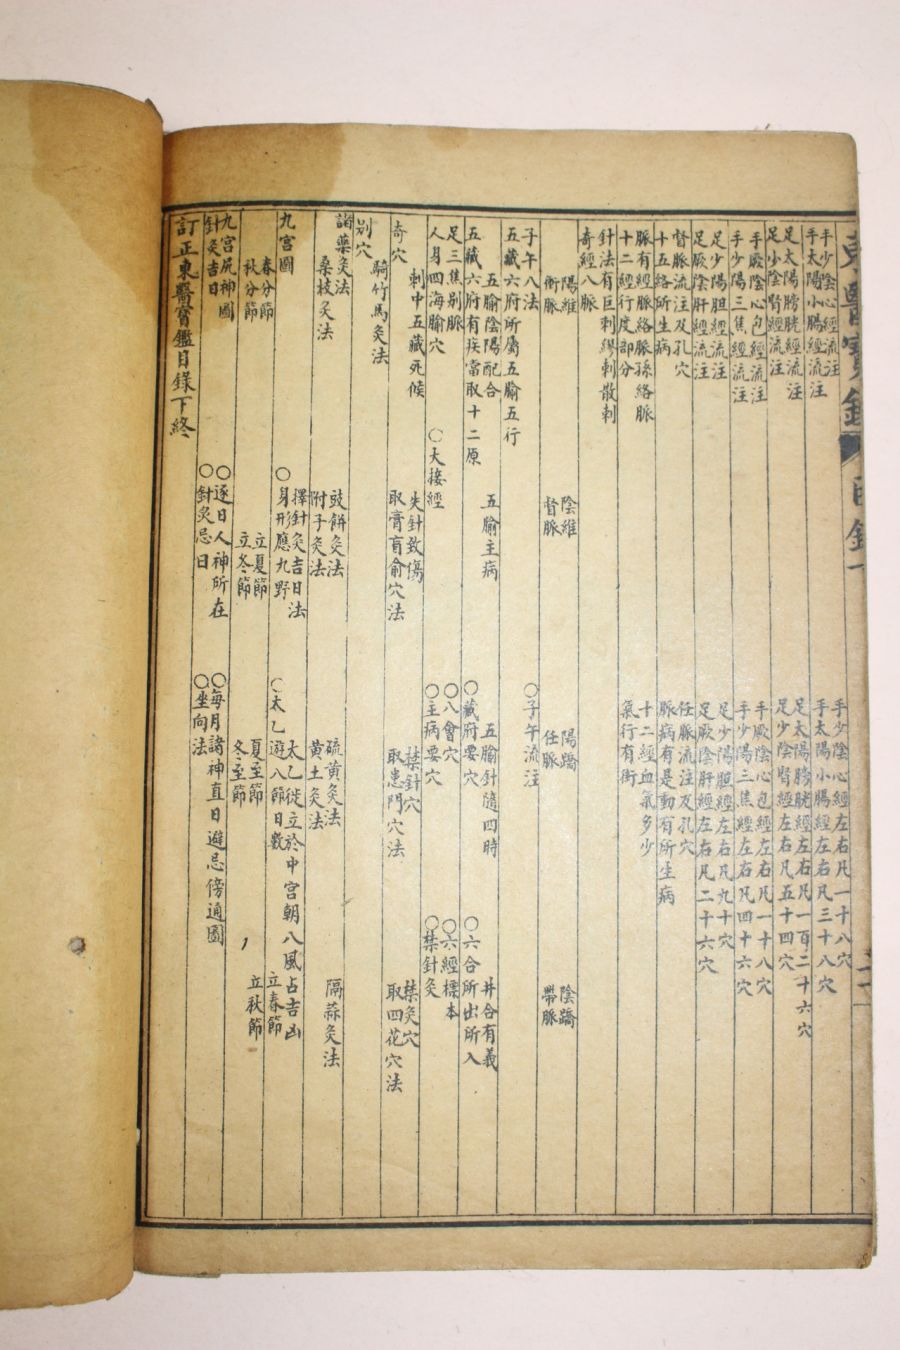 手少陰心經流注
手少陰心經左右凡一十八穴
手太陽小腸經流注
手太陽小腸經左右凡三十八穴
足太陽膀胱經流注
足太陽膀胱經左右凡一百二十六穴
足少陰腎經流注
足少陰腎經左右凡五十四穴
手厥陰心包經流注
手厥陰心包經左右凡一十八穴
手少陽三焦經流注
手少陽三焦經左右凡四十六穴
足少陽胆經流注
足少陽胆經左右凡九十穴
足厥陰肝經流注
足厥陰肝經左右凡二十六穴
督脈流注及孔穴
任脈流注及孔穴
十五絡所生病
脈病有是動有所生病
脈有經脈絡脈孫絡脈
十二經血氣多少
十二經行度部分
氣行有街
針法有巨刺繆刺散刺
奇經八脈
陽維
陰維
陽蹻
陰蹻
衝脈
督脈
任脈
帶脈
子午八法
〇子午流注
五藏六府所屬五腧五行
五腧陰陽配合
五腧主病
五腧針隨四時
井合有義
五藏六府有疾當取十二原
〇藏府要穴
〇六合所出所入
足三焦別脈
〇八會穴
〇六經標本
人身四海腧穴
〇大接經
〇主病要穴
〇禁針灸
刺中五藏死候
失針致傷
禁針穴
禁灸穴
奇穴
取膏肓俞穴法
取患門穴法
取四花穴法
騎竹馬灸法
別穴
諸藥灸法
豉餅灸法
硫黃灸法
隔蒜灸法
桑枝灸法
附子灸法
黃土灸法
擇針灸吉日法
太乙徙立於中宮朝八風占吉凶
九宮圖
〇身形應九野
〇太乙遊八節日數
立春節
春分節
立夏節
夏至節
立秋節
秋分節
立冬節
冬至節
九宮尻神圖
〇逐日人神所在
〇每月諸神直日避忌傍通圖
針灸吉日
〇針灸忌日
〇坐向法
訂正東醫寶鑑目錄下終